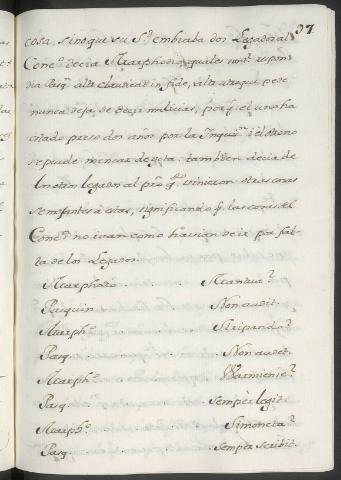 97
cosa, sino que su S.d embiaba dos Legados al
Conc.o decia Marphodio quales son? respon-
dia Pasq. alter claudicat in fide, alter utroque pede
nunca deja de decir malicias, porq el uno ha
estado preso dos años por la Inquis.n i el otro no
se puede menear de gota. tambien decia de
los otros legados al pro q.e vinieron otras cosas
semejantes à estas, significando q. las cosas del
Conc.o no ivan como havian de ir por fal-
ta de los Legados.
Marphorio Mantua?
Pasquin Non audit.
Marph.o Seripando?
Pasq. Non audet.
Marph.o Warmiense?
Pasq. Semper legit.
Marph.o Simoneta?
Pasq. Semper scribit.